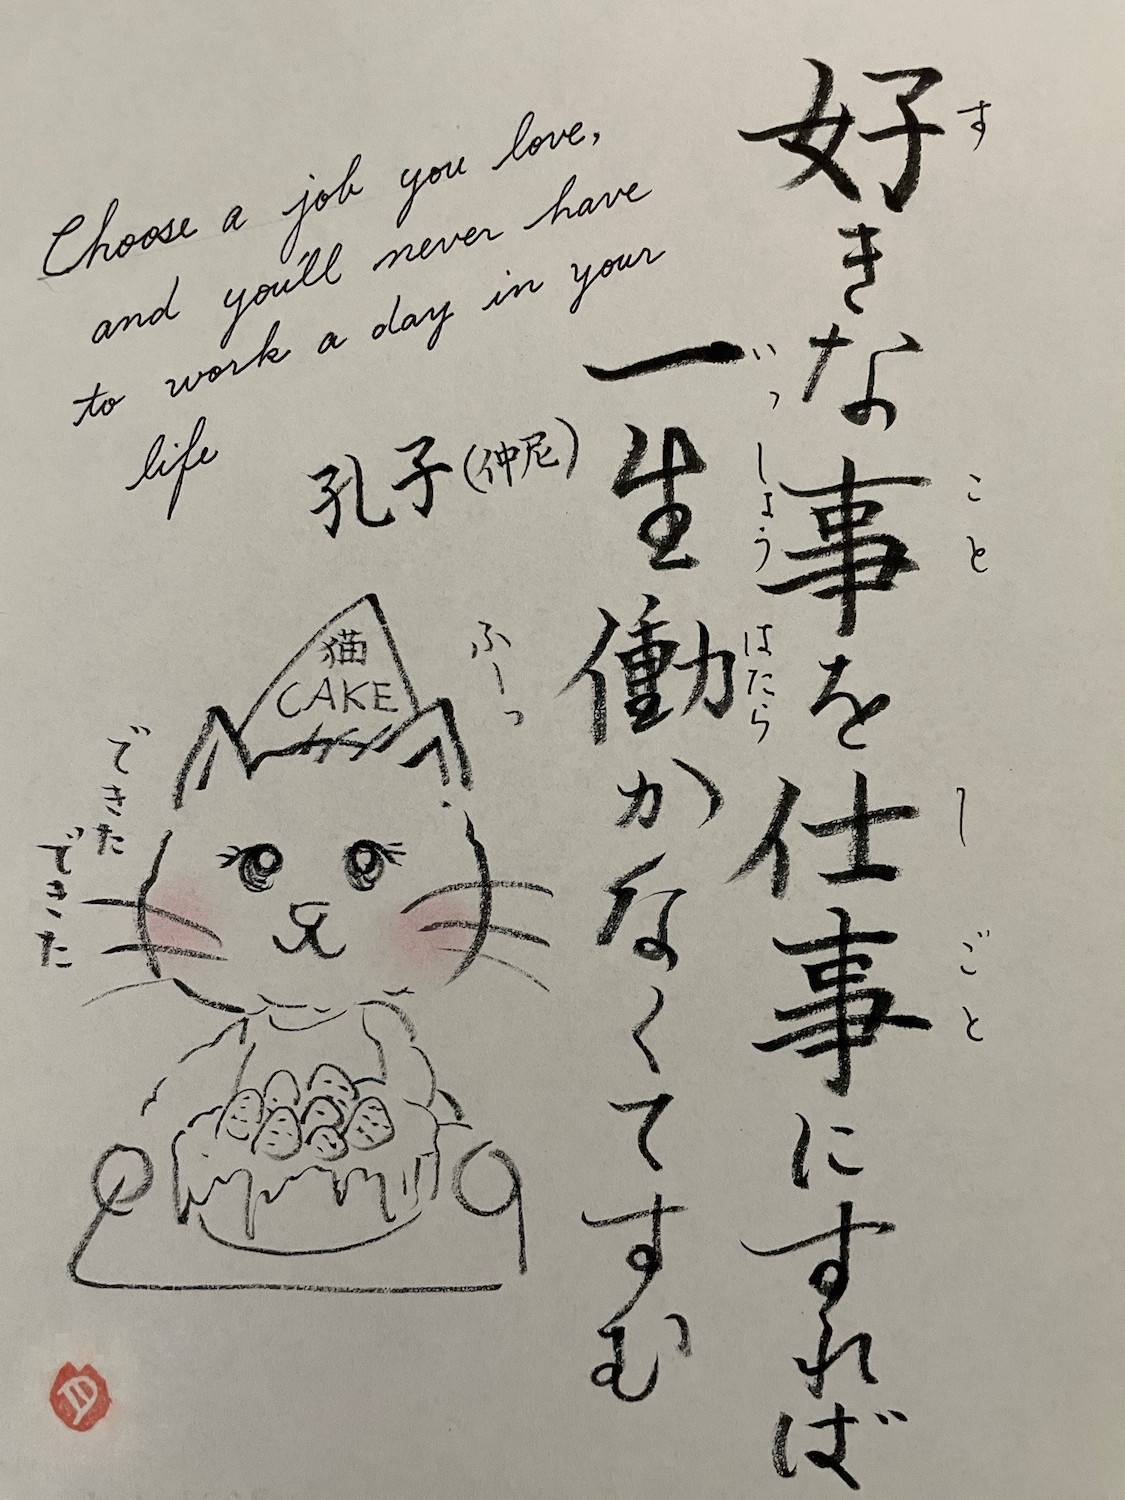 好きな事を仕事にすれば
す
こと
し
ごと
一生働かなくてすむ
いっしょう
はたら
Choose a job you love,
and you'll never have
to work a day in your
life
孔子(仲尼)
猫
CAKE
ふーっ
できた
できた